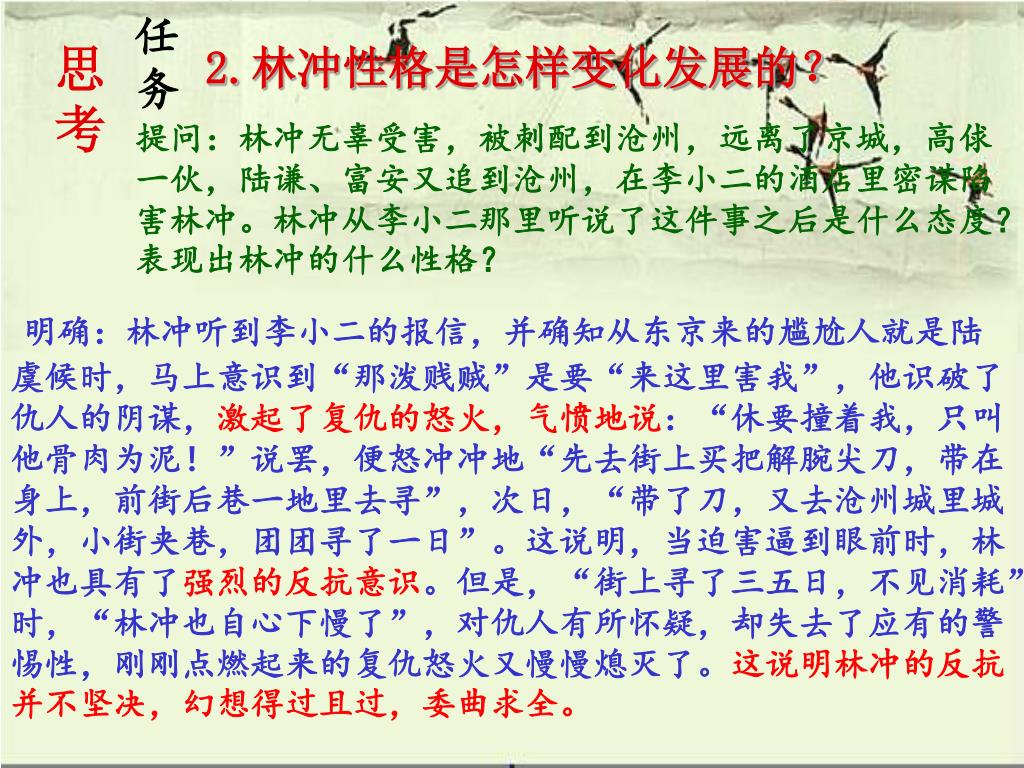 思考
任务
2.林冲性格是怎样变化发展的？
提问：林冲无辜受害，被刺配到沧州，远离了京城，高俅
一伙，陆谦、富安又追到沧州，在李小二的酒店里密谋陷
害林冲。林冲从李小二那里听说了这件事之后是什么态度？
表现出林冲的什么性格？
明确：林冲听到李小二的报信，并确知从东京来的尴尬人就是陆
虞候时，马上意识到“那泼贱贼”是要“来这里害我”，他识破了
仇人的阴谋，激起了复仇的怒火，气愤地说：“休要撞着我，只叫
他骨肉为泥！”说罢，便怒冲冲地“先去街上买把解腕尖刀，带在
身上，前街后巷一地里去寻”，次日，“带了刀，又去沧州城里城
外，小街夹巷，团团寻了一日”。这说明，当迫害逼到眼前时，林
冲也具有了强烈的反抗意识。但是，“街上寻了三五日，不见消耗”
时，“林冲也自心下慢了”，对仇人有所怀疑，却失去了应有的警
惕性，刚刚点燃起来的复仇怒火又慢慢熄灭了。这说明林冲的反抗
并不坚决，幻想得过且过，委曲求全。